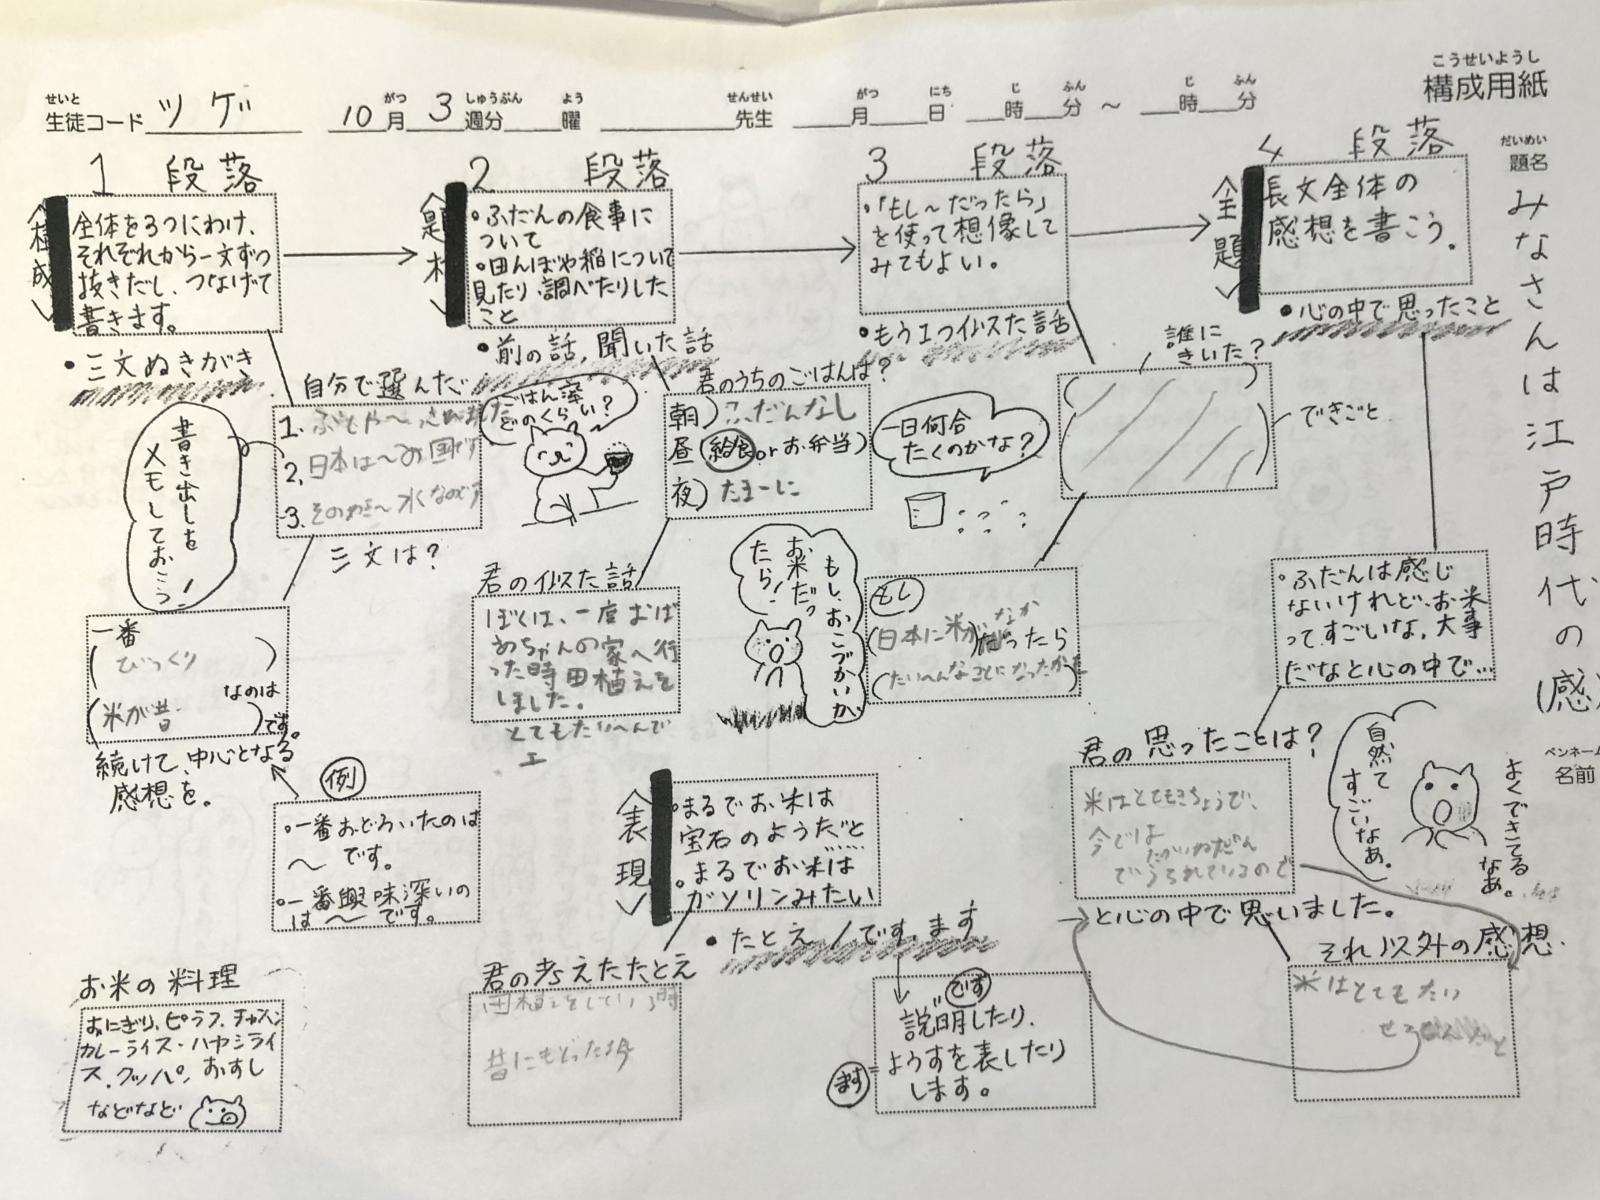 こうせいようし
構成用紙
せいと
生徒コード ツゲ 10月 3週分 曜 先生 月 日 時 分 ～ 時 分
がつ しゅうぶん よう せんせい がつ にち じ ふん じ ふん
だいめい
題名
みなさんは江戸時代の(感)
ペンネーム
名前
1 段落
〈構成〉
全体を3つにわけ、
それぞれから一文ずつ
抜きだし、つなげて
書きます。
•三文ぬきがき
自分で選んだ
書き出しを
メモしておこう!
1.
2. 日本は〜み国です
3.
三文は?
一番
(びっくり)
なのは
(米が昔)です。
続けて、中心となる
感想を。
例
•一番おどろいたのは
〜です。
•一番興味深いの
は〜です。
お米の料理
おにぎり、ピラフ、チャーハン
カレーライス・ハヤシライ
ス、クッパ、おすし
などなど
2 段落
〈題材〉
•ふだんの食事に
ついて
•田んぼや稲について
見たり、調べたりした
こと
•前の話,聞いた話
ごはん率
どのくらい?
君のうちのごはんは?
朝)ふだんなし
昼(給食orお弁当)
夜)たまーに
一日何合
たくのかな?
君の似た話
ぼくは、一度おば
あちゃんの家へ行
った時田植えを
しました。
とてもたいへんで
もし、おこづかいが
お米だっ
たら!
〈表現〉
•まるでお米は
宝石のようだと
•まるでお米は
ガソリンみたい
•たとえ/です、ます
君の考えたたとえ
田植えをしている時
昔にもどった
です
説明したり、
ます
ようすを表したり
します。
3 段落
•「もし〜だったら」
を使って想像して
みてもよい。
•もう1つ似た話
誰に
きいた?
できごと
もし
(日本に米がなか)だったら
4 段落
〈主題〉
長文全体の
感想を書こう。
•心の中で思ったこと
•ふだんは感じ
ないけれど、お米
ってすごいな,大事
だなと心の中で…
君の思ったことは?
米はとてもきちょうで、
今では
でうられているので
→と心の中で思いました。
自然て
すごいなあ。
よくできてる
なあ。
それ以外の感想
米はとてもたい
せつ